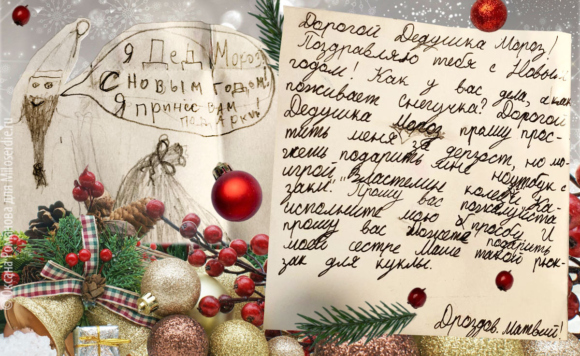 Я Дед Мороз
С новым годом!
Я принёс вам
подарки!
Дорогой Дедушка Мороз!
Поздравляю тебя с Новым
годом! Как у вас дела, а как
поживает снегучка? Дорогой
Дедушка Мороз прошу прос-
тить меня за дерзост, но мо-
жешь подарить мне ноутбук с
игрой "Властелин колец. Ка-
зани." Прошу вас пожалуйста
исполните мою просбу. И
прошу вас можете подарить
моей сестре Маше такой рюк-
зак для куклы.
Дроздов. Матвей!
Оксана Романова для Miloserdie.ru